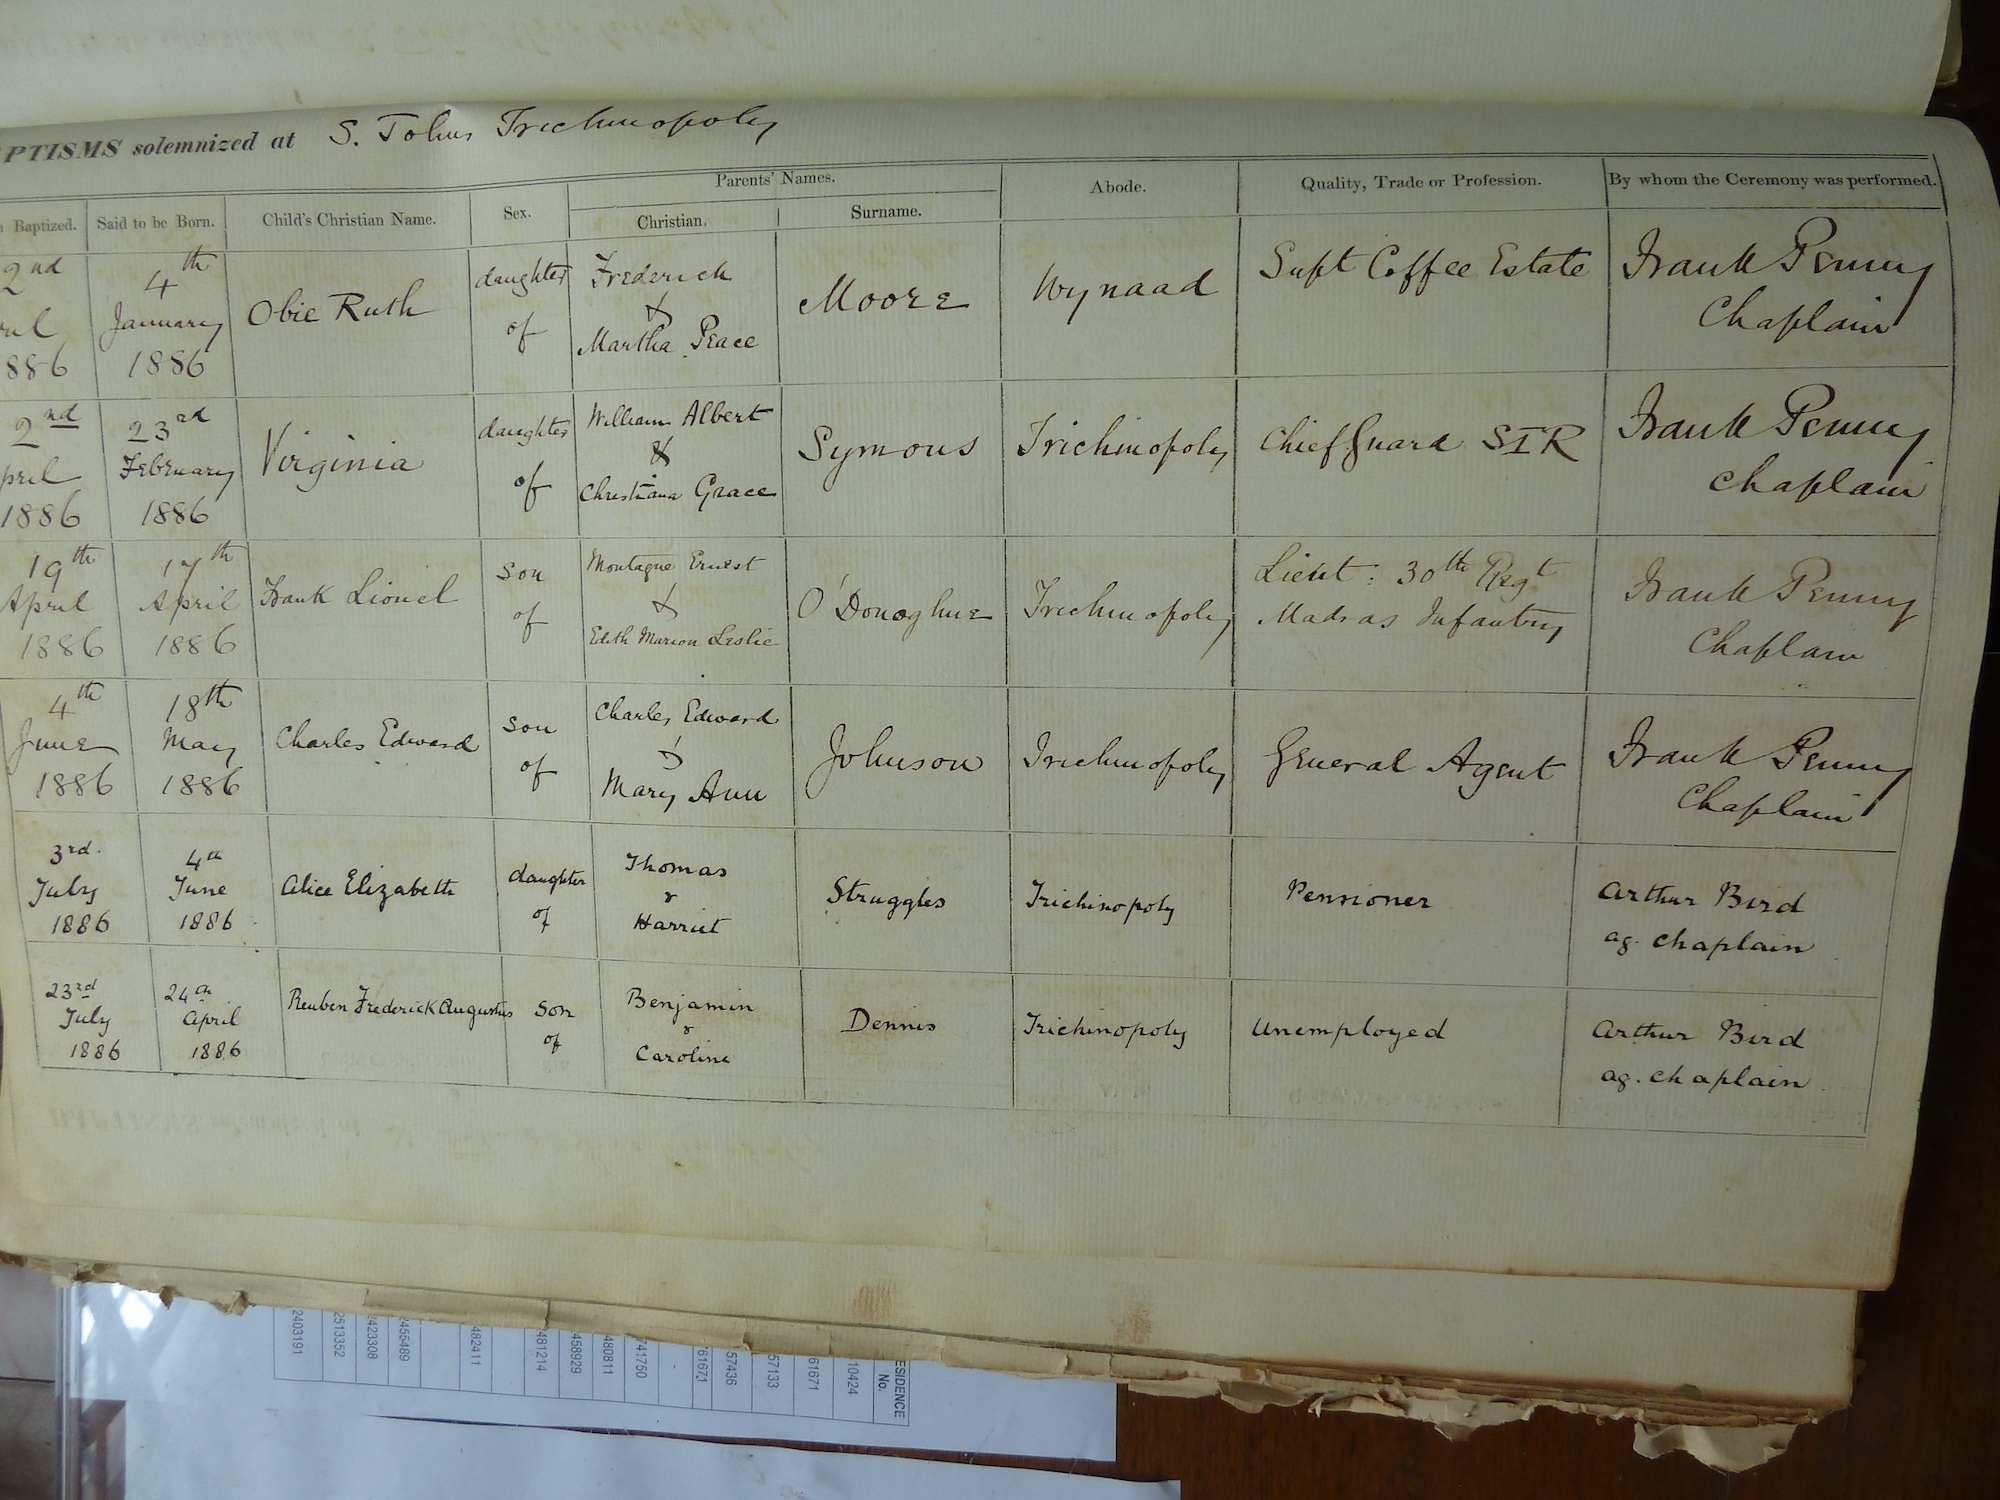 PTISMS solemnized at S. Johns Trichinopoly
Baptized. Said to be Born. Child's Christian Name. Sex. Parents' Names. Abode. Quality, Trade or Profession. By whom the Ceremony was performed.
Christian. Surname.
2nd 4th daughter Frederick Supt Coffee Estate Frank Penny
ril January Obie Ruth of & Moore Wynaad Chaplain
886 1886 Martha Peace
2nd 23rd daughter William Albert Frank Penny
pril February Virginia of & Symons Trichinopoly Chief Guard SIR Chaplain
1886 1886 Christiana Grace
19th 17th son Montague Ernest Lieut: 30th Regt Frank Penny
April April Frank Lionel of & O'Donoghue Trichinopoly Madras Infantry Chaplain
1886 1886 Edith Marion Leslie
4th 18th son Charles Edward Frank Penny
June May Charles Edward of & Johnson Trichinopoly General Agent Chaplain
1886 1886 Mary Ann
3rd. 4th daughter Thomas Arthur Bird
July June Alice Elizabeth of & Struggles Trichinopoly Pensioner ag. Chaplain
1886 1886 Harriet
23rd 24th son Benjamin Arthur Bird
July April Reuben Frederick Augustus of & Dennis Trichinopoly Unemployed ag. chaplain
1886 1886 Caroline
2403191
2513352
2423308
2455489
482411
481214
458929
480811
741750
-
761671
57436
57133
61671
10424
ESIDENCE
No.